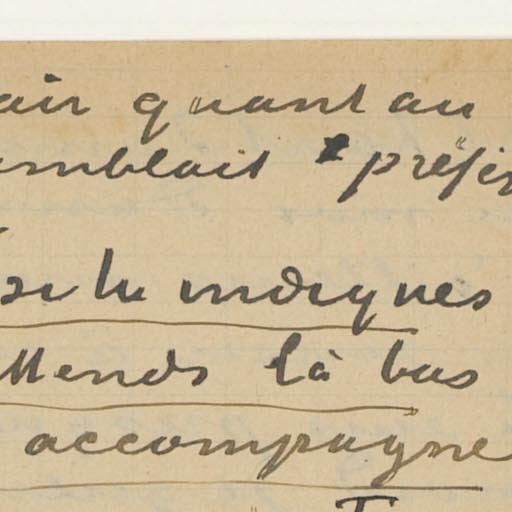 air quant au
emblait préfér
si tu indiques
ttends là bas
accompagne